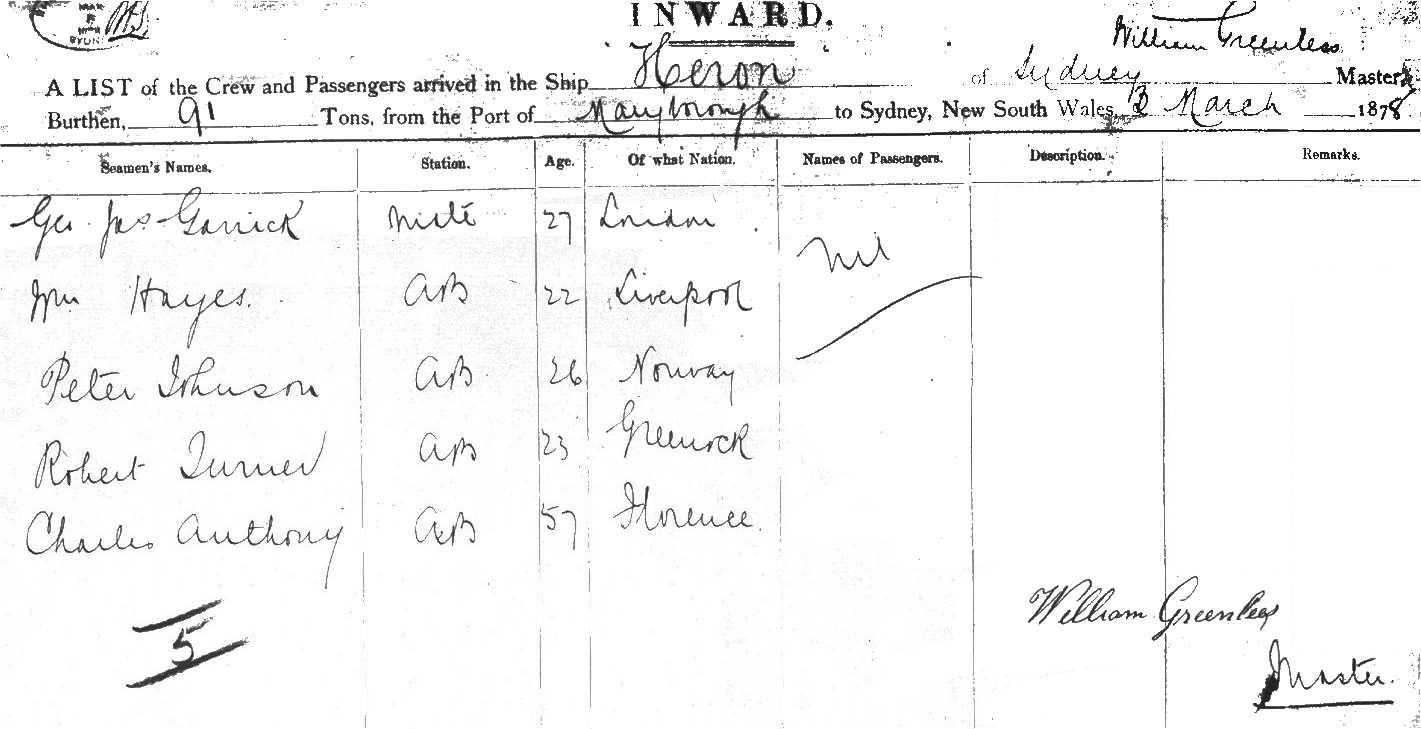 INWARD.
William Greenlees
A LIST of the Crew and Passengers arrived in the Ship Heron of Sydney Master,
Burthen, 91 Tons, from the Port of Maryborough to Sydney, New South Wales, March 1878
Seamen's Names. Station. Age. Of what Nation. Names of Passengers. Description. Remarks.
Geo Jas Garrick Mate 27 London
Nil
Wm Hayes. AB 22 Liverpool
Peter Johnson AB 26 Norway
Robert Turner AB 23 Greenock
Charles Anthony AB 57 Florence.
5
William Greenlees
Master.